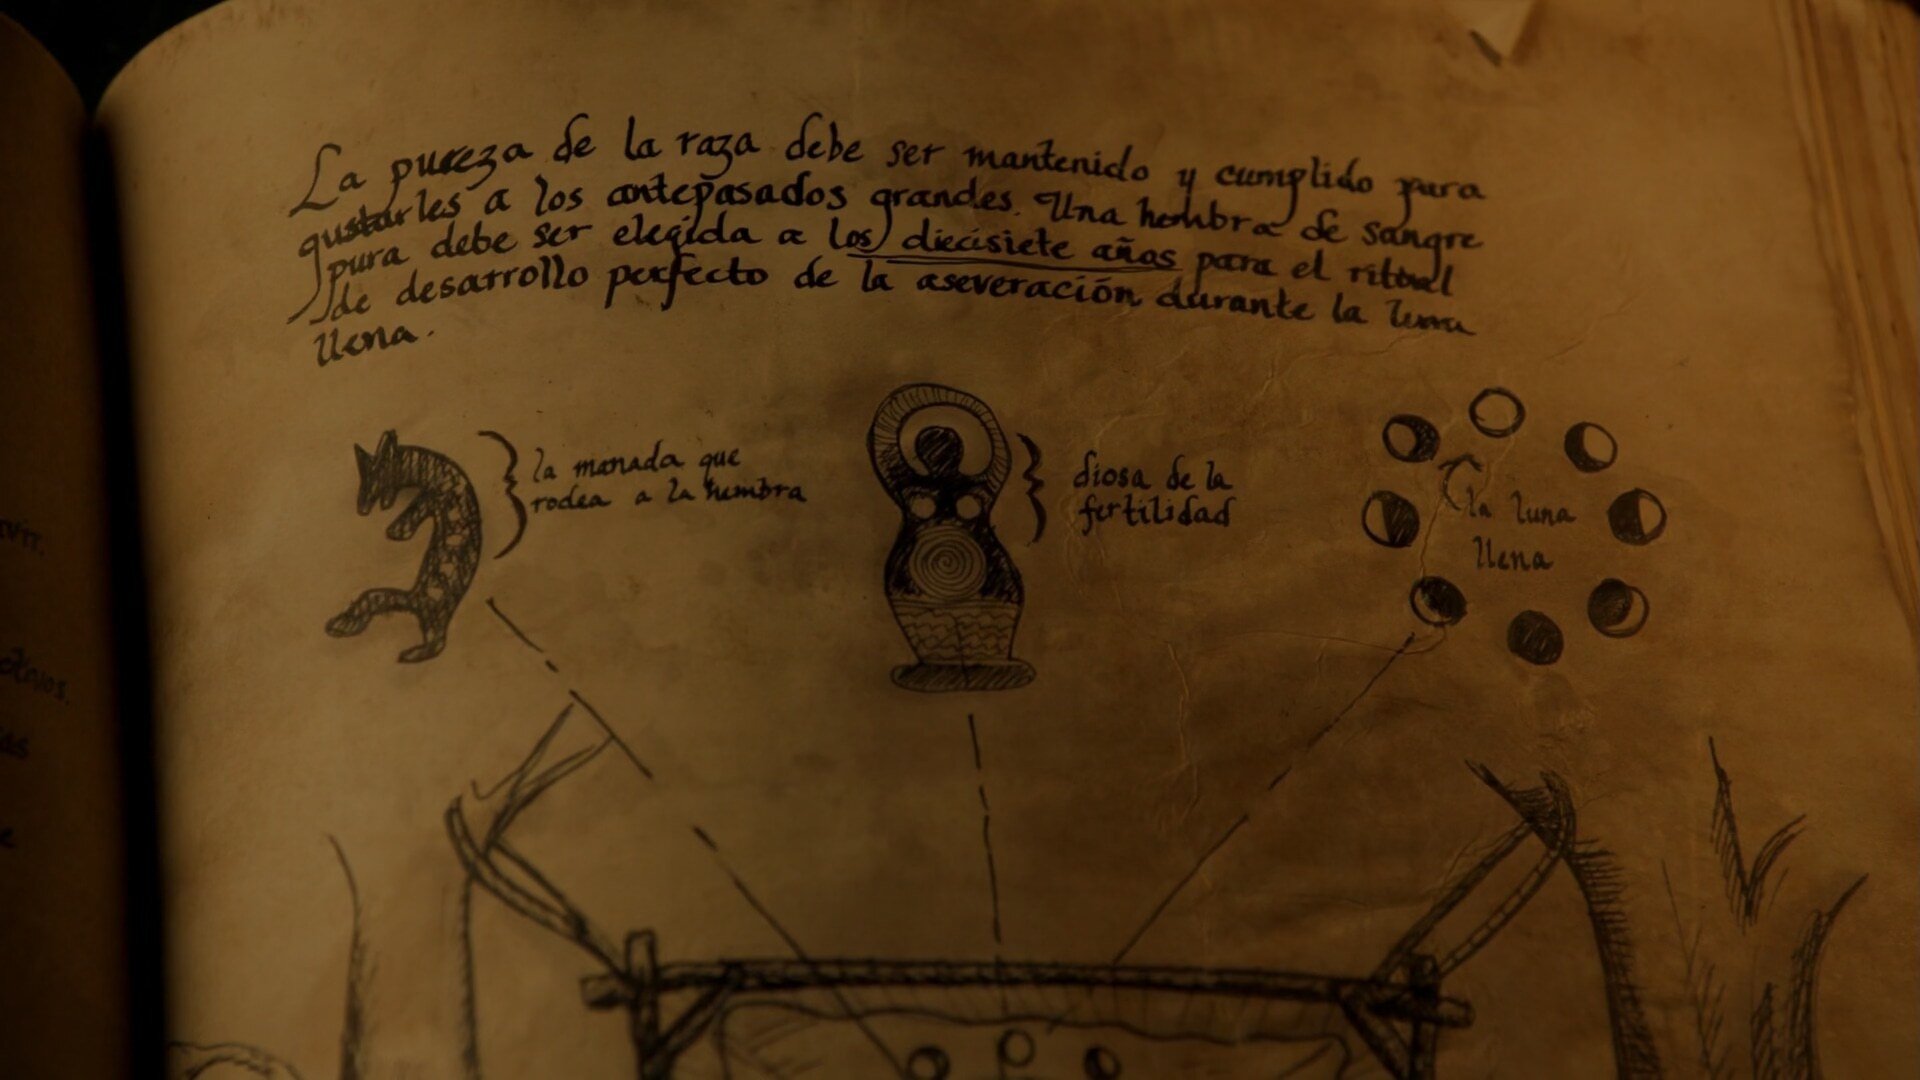 La pureza de la raza debe ser mantenido y cumplido para
gustarles a los antepasados grandes. Una hembra de sangre
pura debe ser elegida a los diecisiete años para el ritual
de desarrollo perfecto de la aseveración durante la luna
llena.
la manada que
rodea a la hembra
diosa de la
fertilidad
la luna
llena